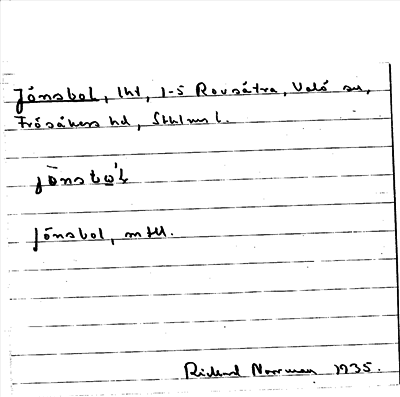 Jónsbol, lht, 1-5 Ravsátra, Valö sn,
Frösákers hd, Sthlms l.
Jónsbol, mtll.
Rickard Norrman 1935.